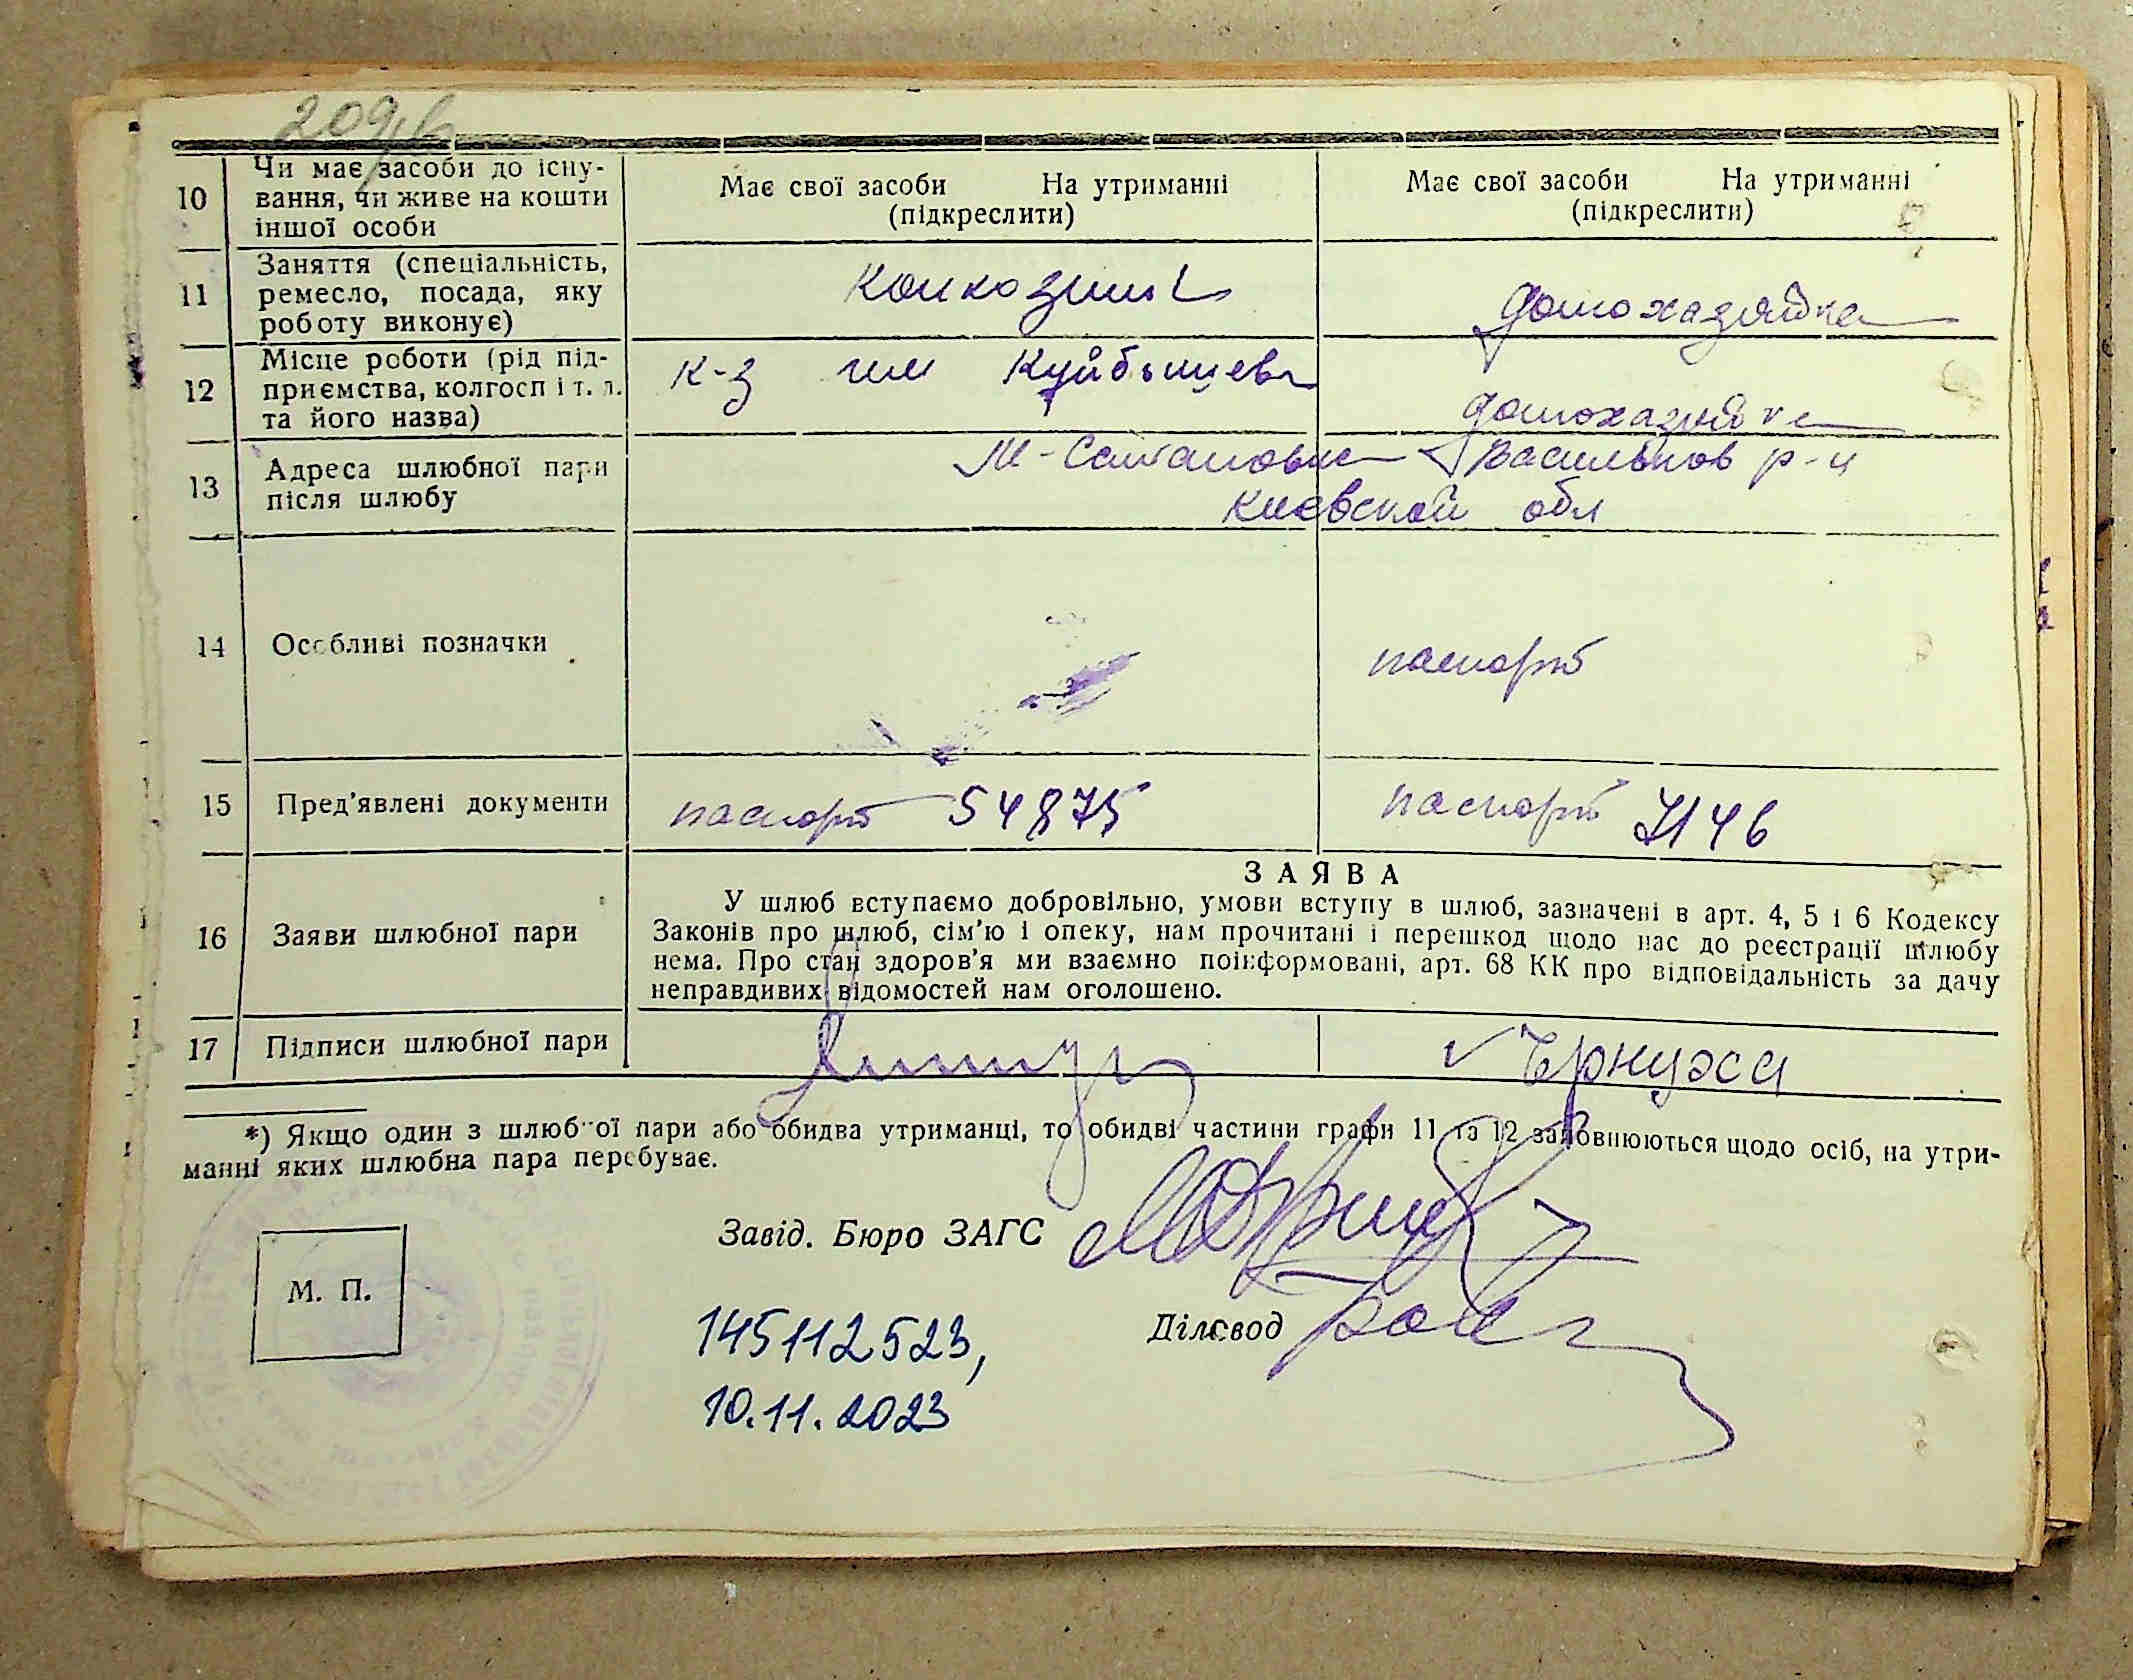 209
10 Чи має засоби до існу- Має свої засоби На утриманні Має свої засоби На утриманні
вання, чи живе на кошти (підкреслити) (підкреслити)
іншої особи
11 Заняття (спеціальність,
ремесло, посада, яку домохазяйка
роботу виконує)
12 Місце роботи (рід під- к-з им Куйбышева
приємства, колгосп і т. д. домохазяйка
та його назва)
13 Адреса шлюбної пари Васильков р-н
після шлюбу Киевской обл
14 Особливі позначки паспорт
15 Пред'явлені документи паспорт 54875 паспорт 7146
ЗАЯВА
16 Заяви шлюбної пари У шлюб вступаємо добровільно, умови вступу в шлюб, зазначені в арт. 4, 5 і 6 Кодексу
Законів про шлюб, сім'ю і опеку, нам прочитані і перешкод щодо нас до реєстрації шлюбу
нема. Про стан здоров'я ми взаємно поінформовані, арт. 68 КК про відповідальність за дачу
неправдивих відомостей нам оголошено.
17 Підписи шлюбної пари Чернуха
*) Якщо один з шлюбної пари або обидва утриманці, то обидві частини графи 11 та 12 заповнюються щодо осіб, на утри-
манні яких шлюбна пара перебуває.
Завід. Бюро ЗАГС
М. П.
Діловод
145112523,
10.11.2023